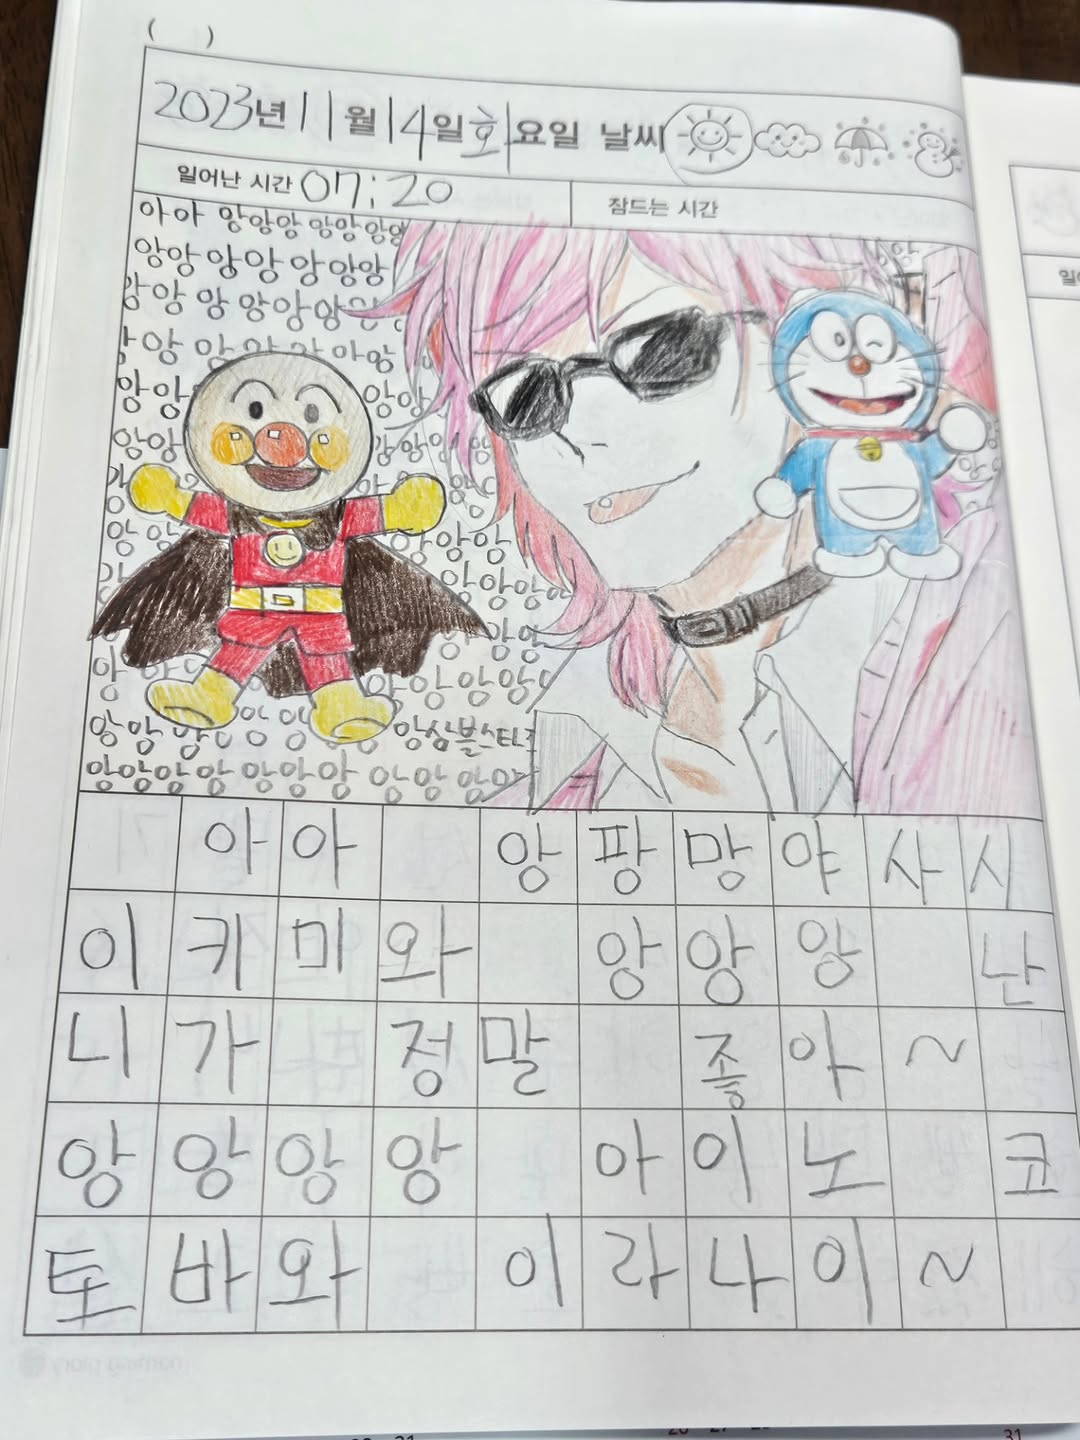 ( )
2023년 11월 14일 화요일 날씨
일어난 시간 07:20
잠드는 시간
아아 앙앙앙 앙앙 앙앙
앙앙 앙앙 앙앙앙
앙앙 앙 앙앙앙
앙앙 앙앙
앙앙 앙앙
앙앙 앙앙앙
앙앙 앙앙앙
앙앙앙
앙앙
앙 앙앙앙
앙앙 앙 앙삼블스타
앙앙앙앙 앙앙앙 앙앙 앙
아아 앙팡망야사시
이키미와 앙앙앙 난
니가 정말 좋아~
앙앙앙앙 아이노 코
토바와 이라나이~
morning glory
31